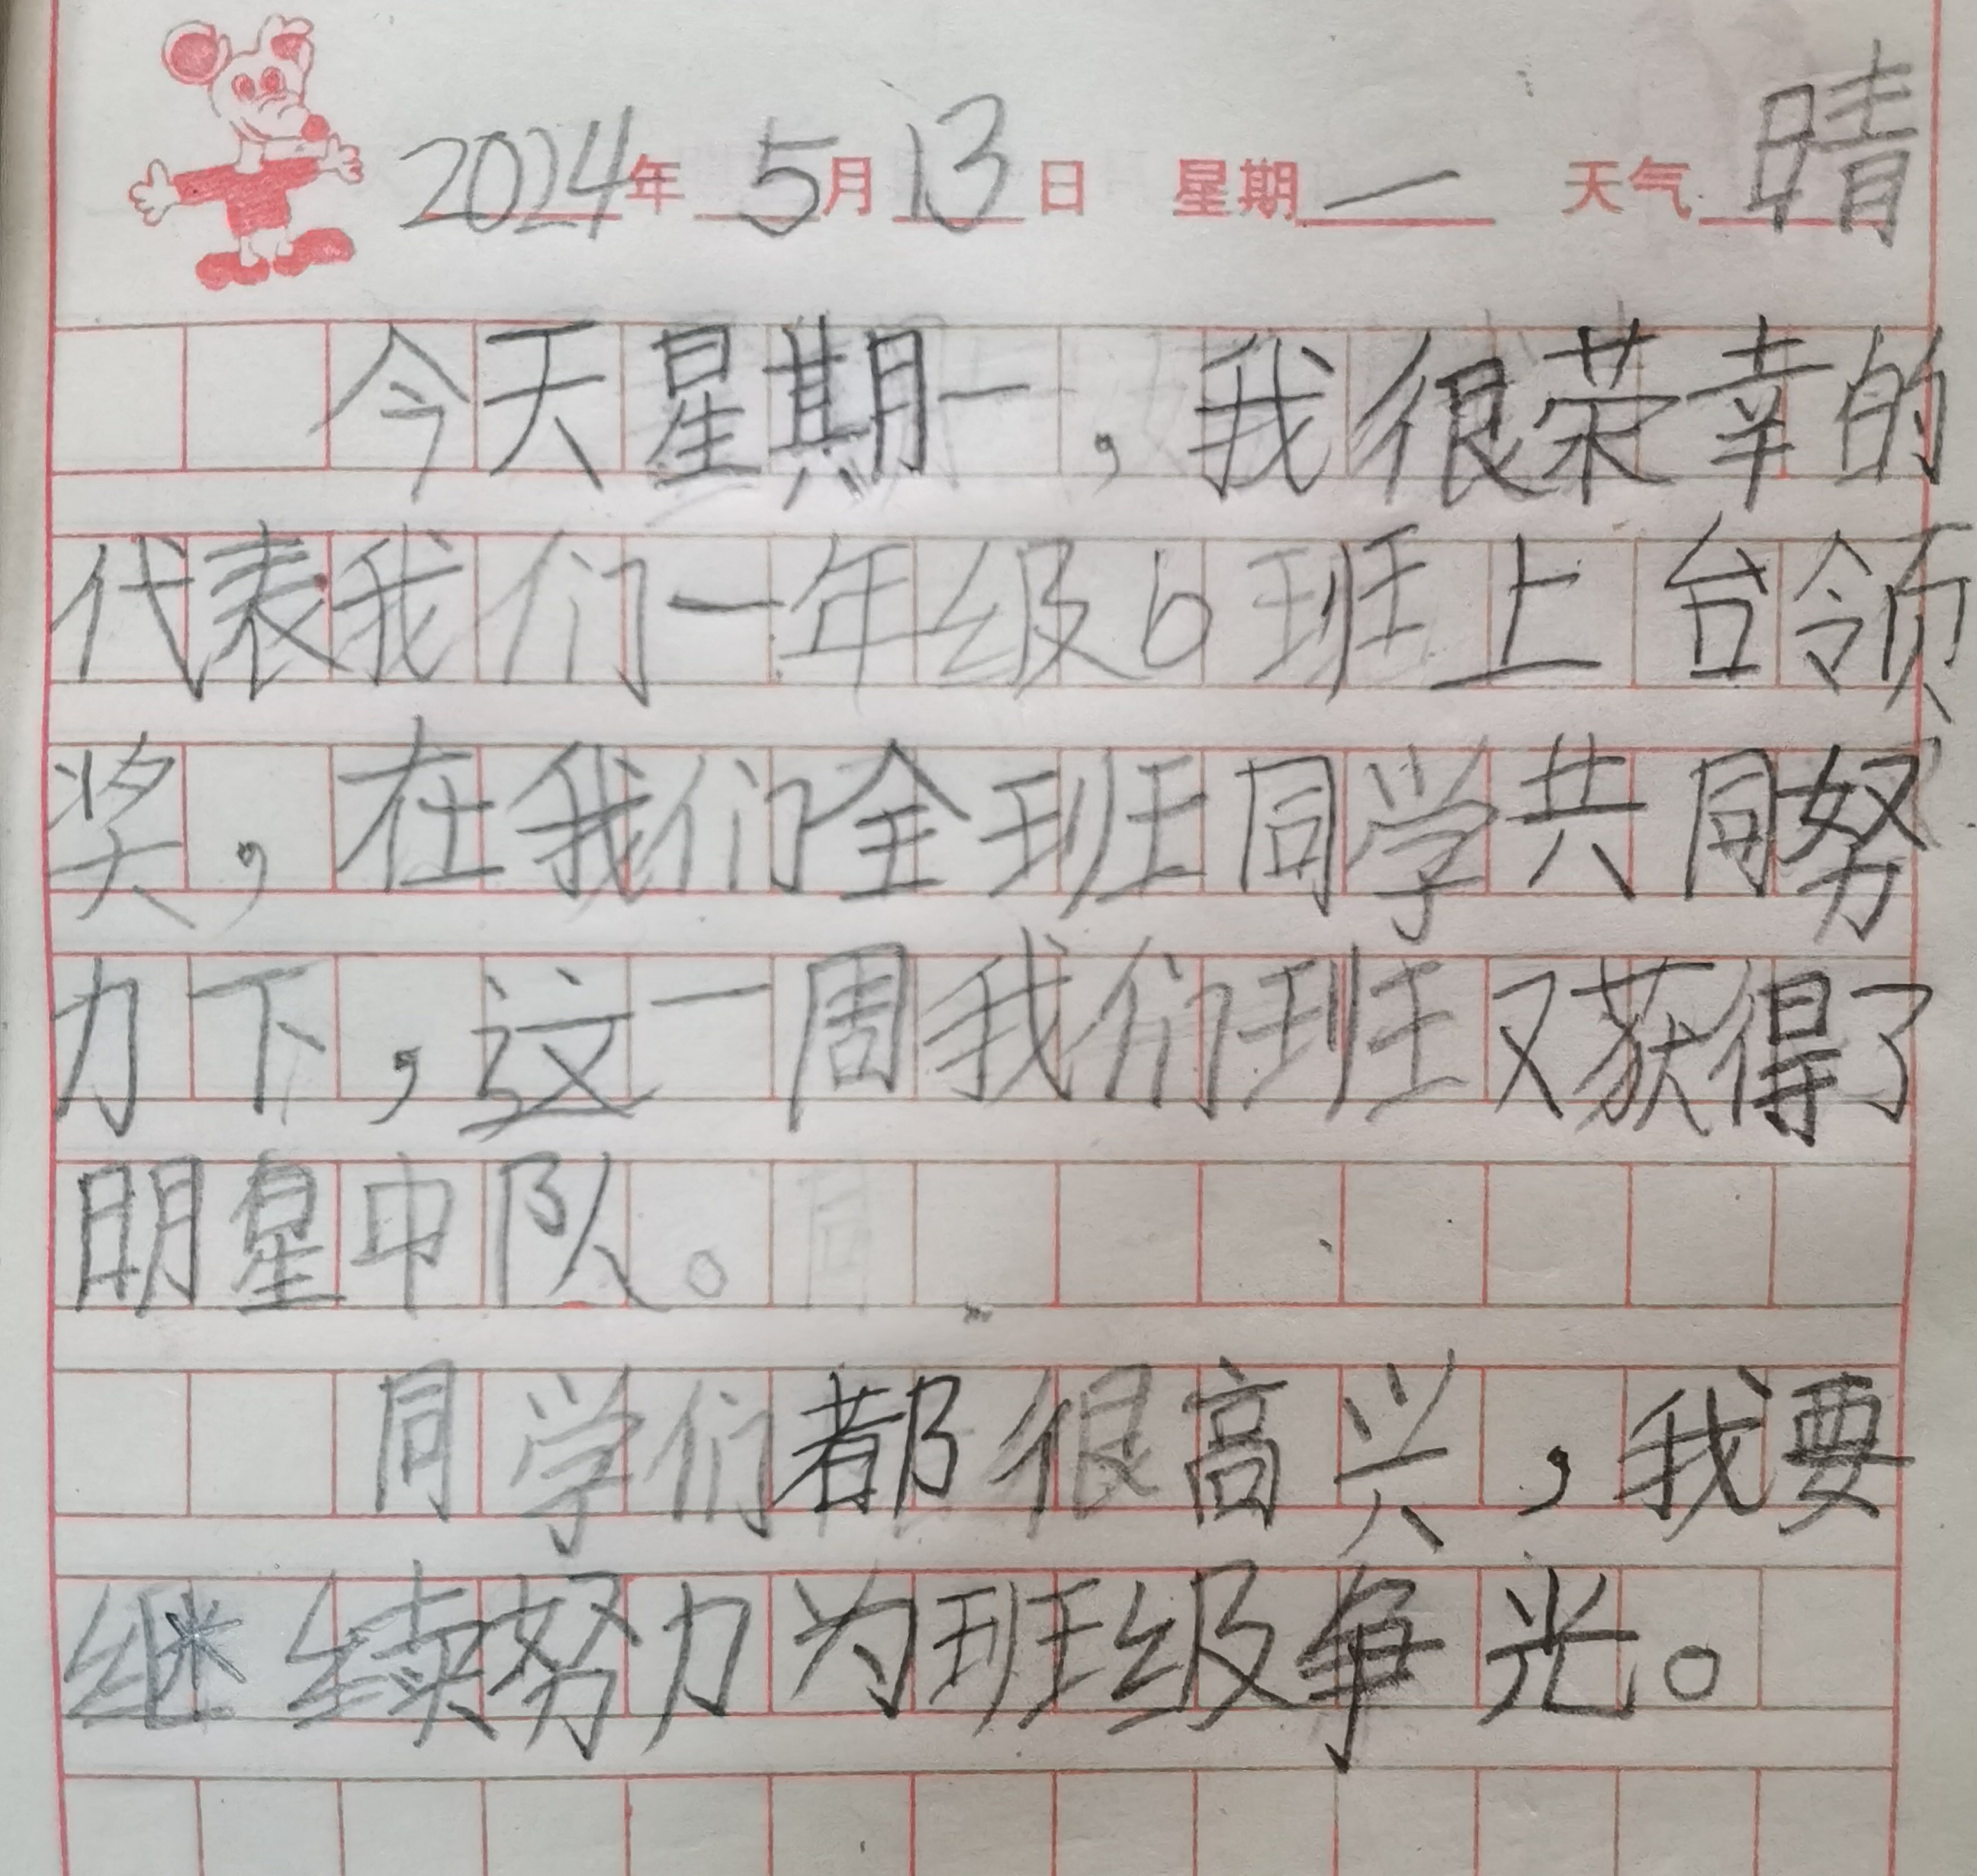 2024年 5月13日 星期一 天气晴
今天星期一，我很荣幸的
代表我们一年级6班上台领
奖，在我们全班同学共同努
力下，这一周我们班又获得了
明星中队。
同学们都很高兴，我要
继续努力为班级争光。